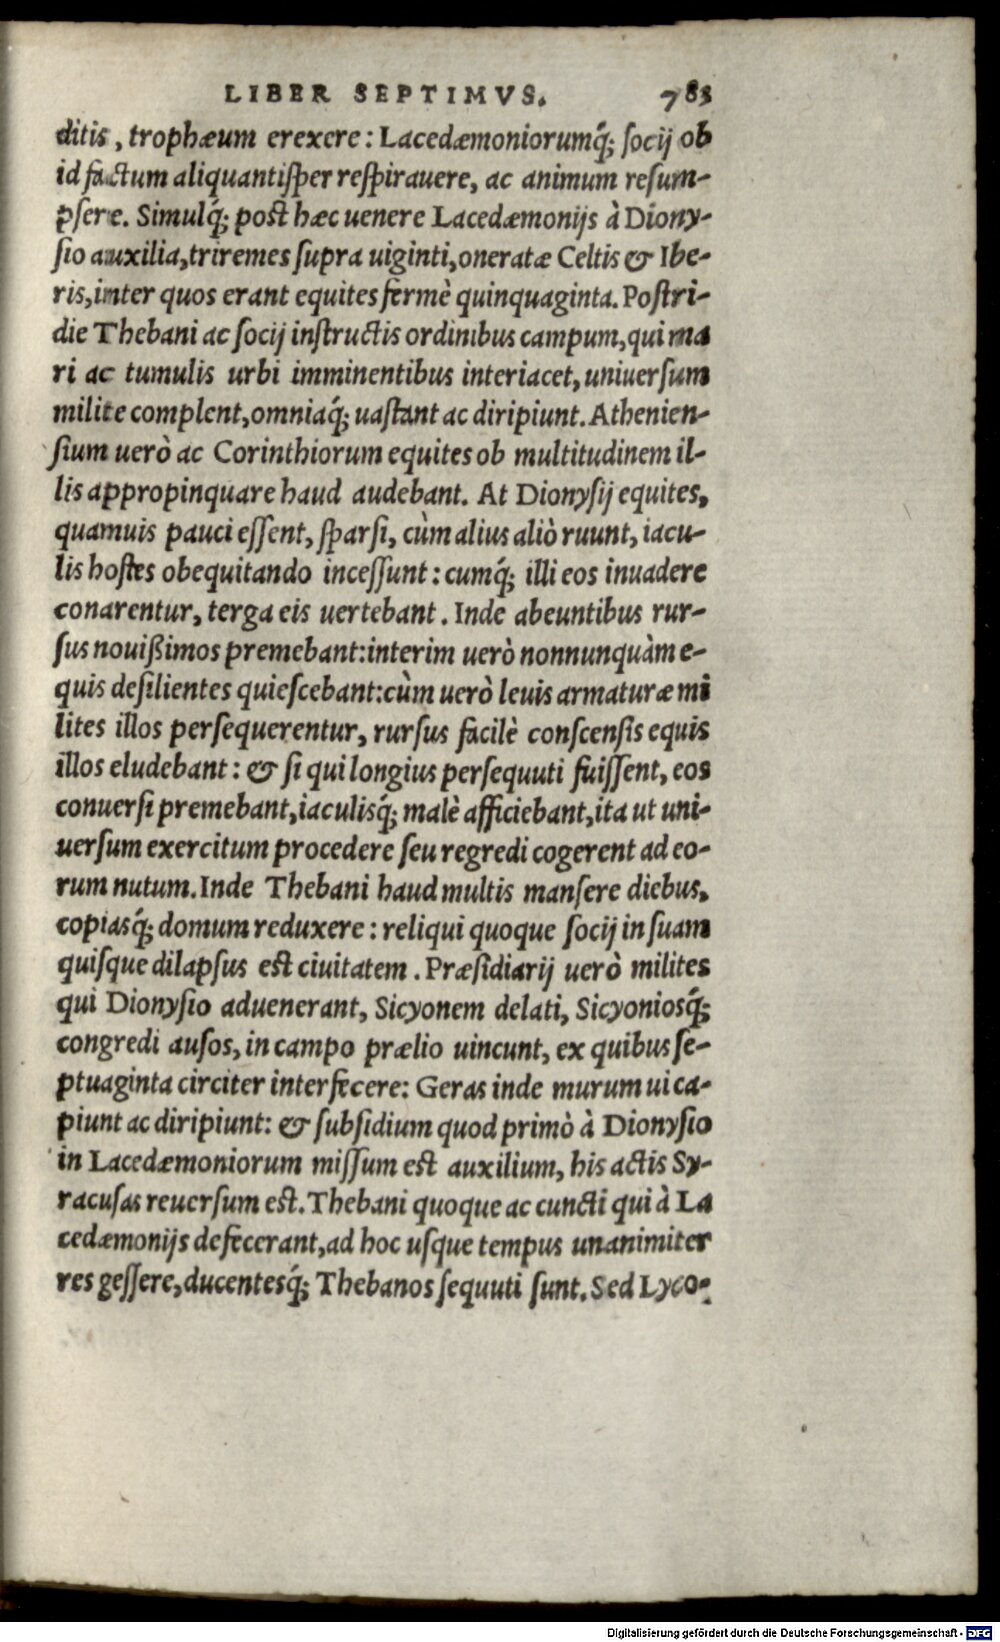 LIBER SEPTIMVS. 783
ditis, trophæum erexere: Lacedæmoniorumq́; ſocij ob
id factum aliquantiſper reſpirauere, ac animum reſum-
pſere. Simulq́; poſt hæc uenere Lacedæmonijs à Diony-
ſio auxilia, triremes ſupra uiginti, oneratæ Celtis & Ibe-
ris, inter quos erant equites fermè quinquaginta. Poſtri-
die Thebani ac ſocij inſtructis ordinibus campum, qui ma
ri ac tumulis urbi imminentibus interiacet, uniuerſum
milite complent, omniaq́; uaſtant ac diripiunt. Athenien-
ſium uerò ac Corinthiorum equites ob multitudinem il-
lis appropinquare haud audebant. At Dionyſij equites,
quamuis pauci eſſent, ſparſi, cùm alius aliò ruunt, iacu-
lis hoſtes obequitando inceſſunt: cumq́; illi eos inuadere
conarentur, terga eis uertebant. Inde abeuntibus rur-
ſus nouißimos premebant: interim uerò nonnunquàm e-
quis deſilientes quieſcebant: cùm uerò leuis armaturæ mi
lites illos perſequerentur, rurſus facilè conſcenſis equis
illos eludebant: & ſi qui longius perſequuti fuiſſent, eos
conuerſi premebant, iaculisq́; malè afficiebant, ita ut uni-
uerſum exercitum procedere ſeu regredi cogerent ad eo-
rum nutum. Inde Thebani haud multis manſere diebus,
copiasq́; domum reduxere: reliqui quoque ſocij in ſuam
quiſque dilapſus eſt ciuitatem. Præſidiarij uerò milites
qui Dionyſio aduenerant, Sicyonem delati, Sicyoniosq́;
congredi auſos, in campo prælio uincunt, ex quibus ſe-
ptuaginta circiter interfecere: Geras inde murum ui ca-
piunt ac diripiunt: & ſubſidium quod primò à Dionyſio
in Lacedæmoniorum miſſum eſt auxilium, his actis Sy-
racuſas reuerſum eſt. Thebani quoque ac cuncti qui à La
cedæmonijs defecerant, ad hoc uſque tempus unanimiter
res geſſere, ducentesq́; Thebanos ſequuti ſunt. Sed Lyco-
Digitalisierung gefördert durch die Deutsche Forschungsgemeinschaft - DFG